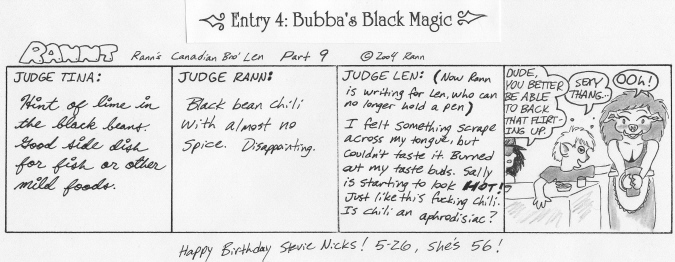 Entry 4: Bubba's Black Magic
RANNT Rann's Canadian Bro' Len Part 9 ©2004 Rann
JUDGE TINA:
Hint of lime in
the black beans.
Good side dish
for fish or other
mild foods.
JUDGE RANN:
Black bean chili
with almost no
spice. Disappointing.
JUDGE LEN: (Now Rann
is writing for Len, who can
no longer hold a pen)
I felt something scrape
across my tongue, but
couldn't taste it. Burned
out my taste buds. Sally
is starting to look HOT!
Just like this fucking chili.
Is chili an aphrodisiac?
DUDE,
YOU BETTER
BE ABLE
TO BACK
THAT FLIRT-
ING UP.
SEXY
THANG...
OOh!
Happy Birthday Stevie Nicks! 5-26, she's 56!